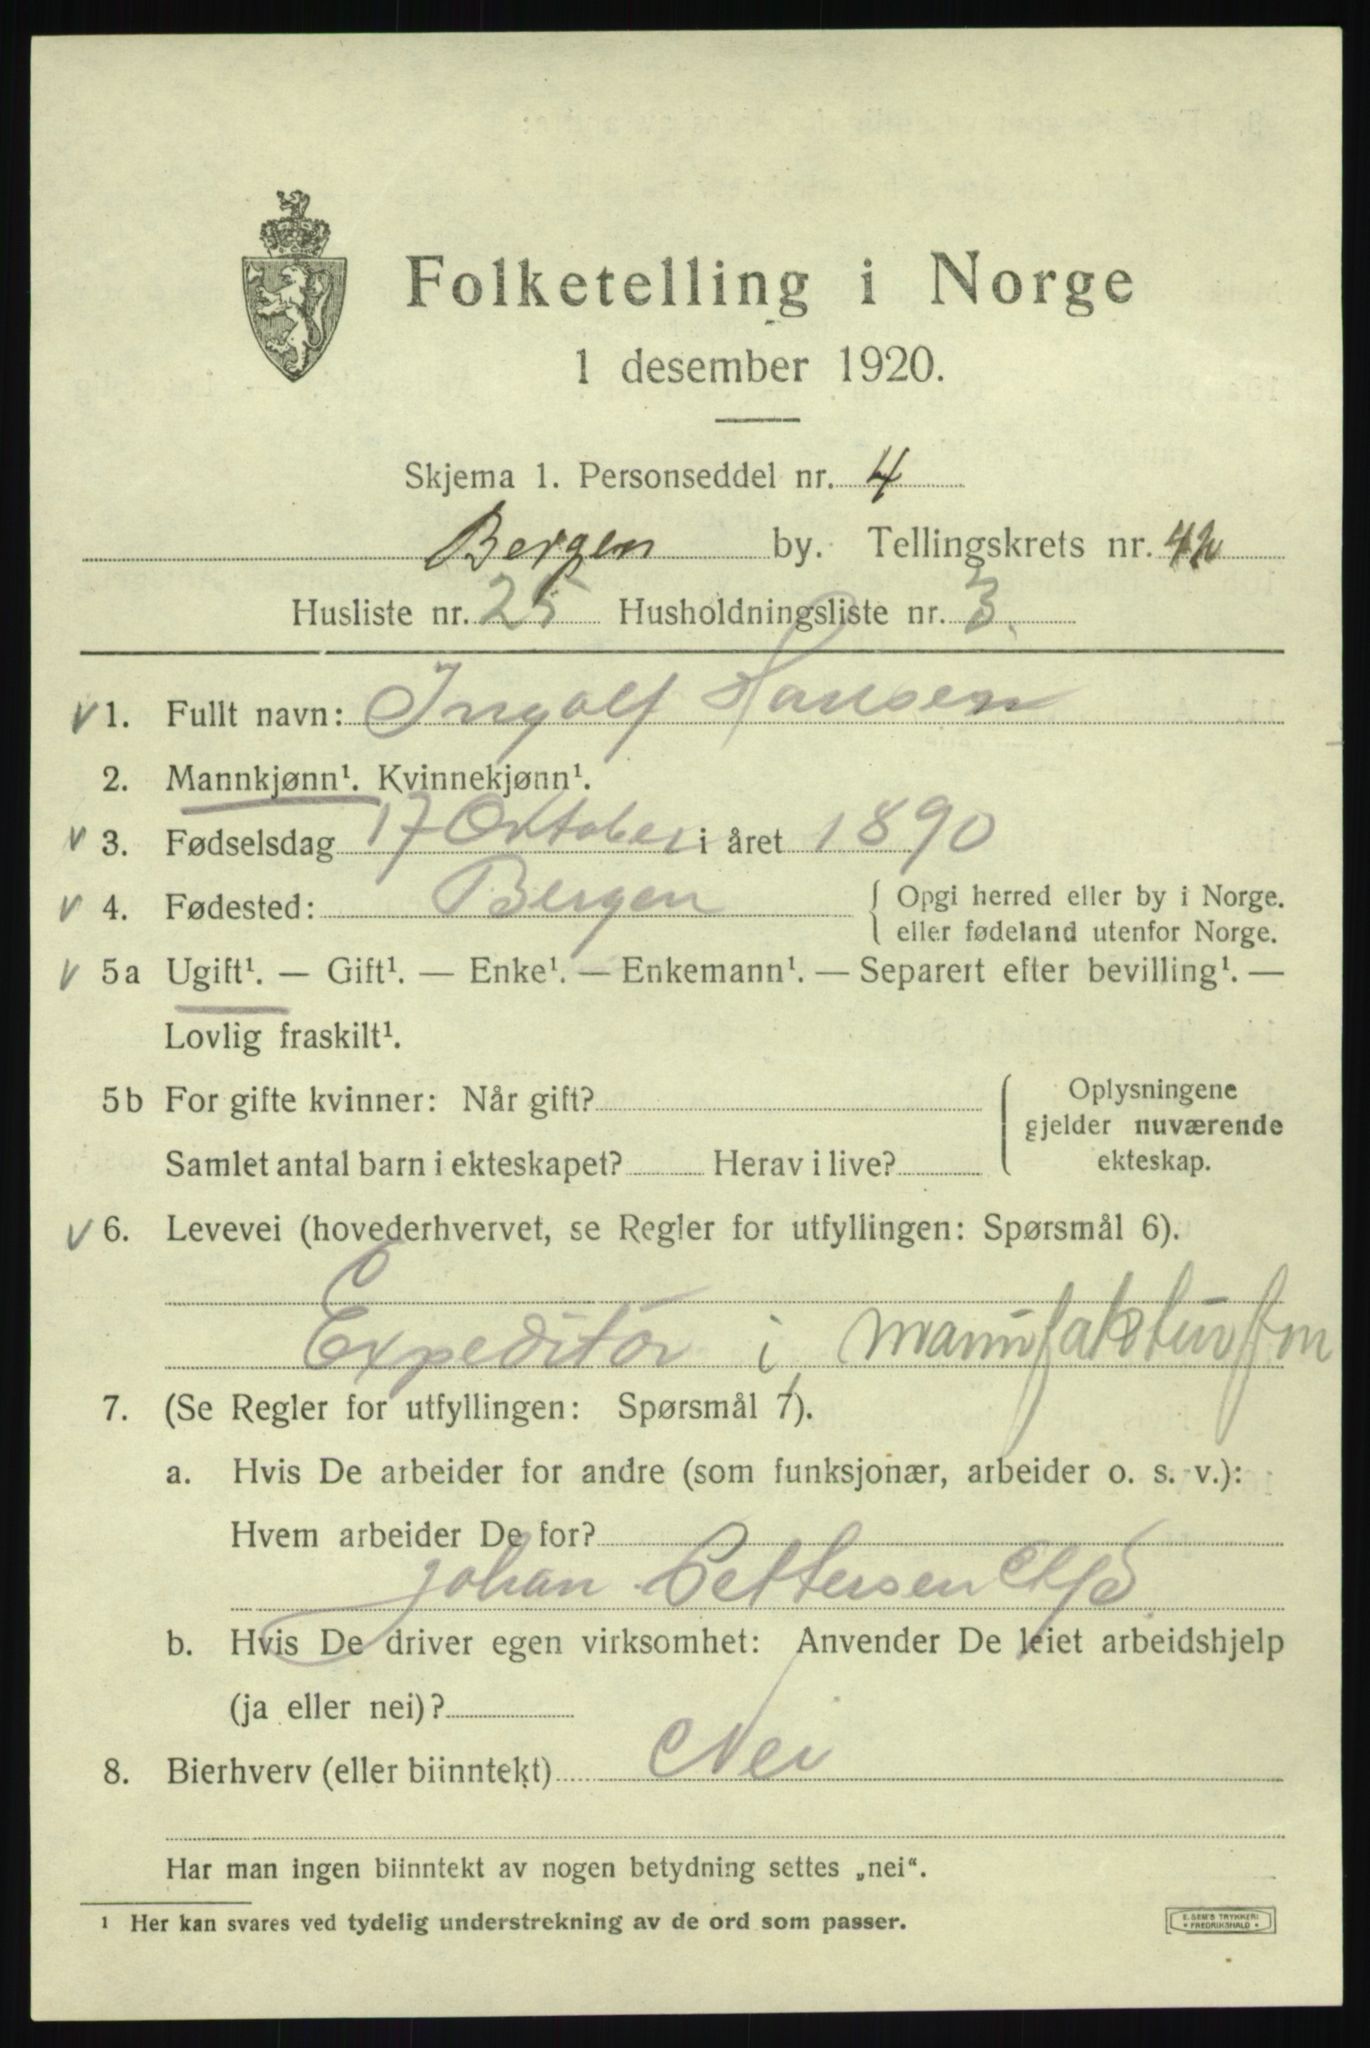 Folketelling i Norge
1 desember 1920.
Skjema 1. Personseddel nr. 4
Bergen by. Tellingskrets nr. 42
Husliste nr. 25 Husholdningsliste nr. 3.
v 1. Fullt navn: Ingolf Hansen
2. Mannkjønn¹. Kvinnekjønn¹.
v 3. Fødselsdag 17 Oktober i året 1890
v 4. Fødested: Bergen { Opgi herred eller by i Norge.
eller fødeland utenfor Norge.
v 5a Ugift¹. — Gift¹. — Enke¹. — Enkemann¹. — Separert efter bevilling¹. —
Lovlig fraskilt¹.
5b For gifte kvinner: Når gift? { Oplysningene
gjelder nuværende
Samlet antal barn i ekteskapet? Herav i live? ekteskap.
v 6. Levevei (hovederhvervet, se Regler for utfyllingen: Spørsmål 6).
Expeditør i manufakturftn
7. (Se Regler for utfyllingen: Spørsmål 7).
a. Hvis De arbeider for andre (som funksjonær, arbeider o. s. v.):
Hvem arbeider De for?
Johan Pettersen
b. Hvis De driver egen virksomhet: Anvender De leiet arbeidshjelp
(ja eller nei)?
8. Bierhverv (eller biinntekt) Nei
Har man ingen biinntekt av nogen betydning settes „nei“.
¹ Her kan svares ved tydelig understrekning av de ord som passer.
E. SEM'S TRYKKERI
FREDRIKSHALD